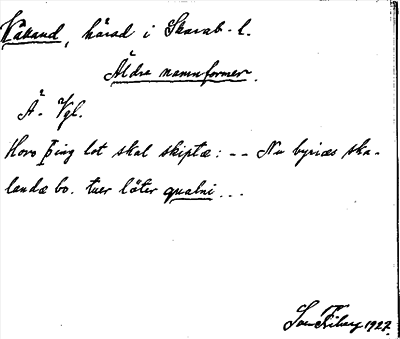 Kåkand, härad i Skarab. l.
Äldre namnformer.
Ä. Vgl.
Horo þing lot skal skiptæ: -- Nu byriæs ska-
landæ bo. tuer löter qualni...
Ivar Friberg 1927.